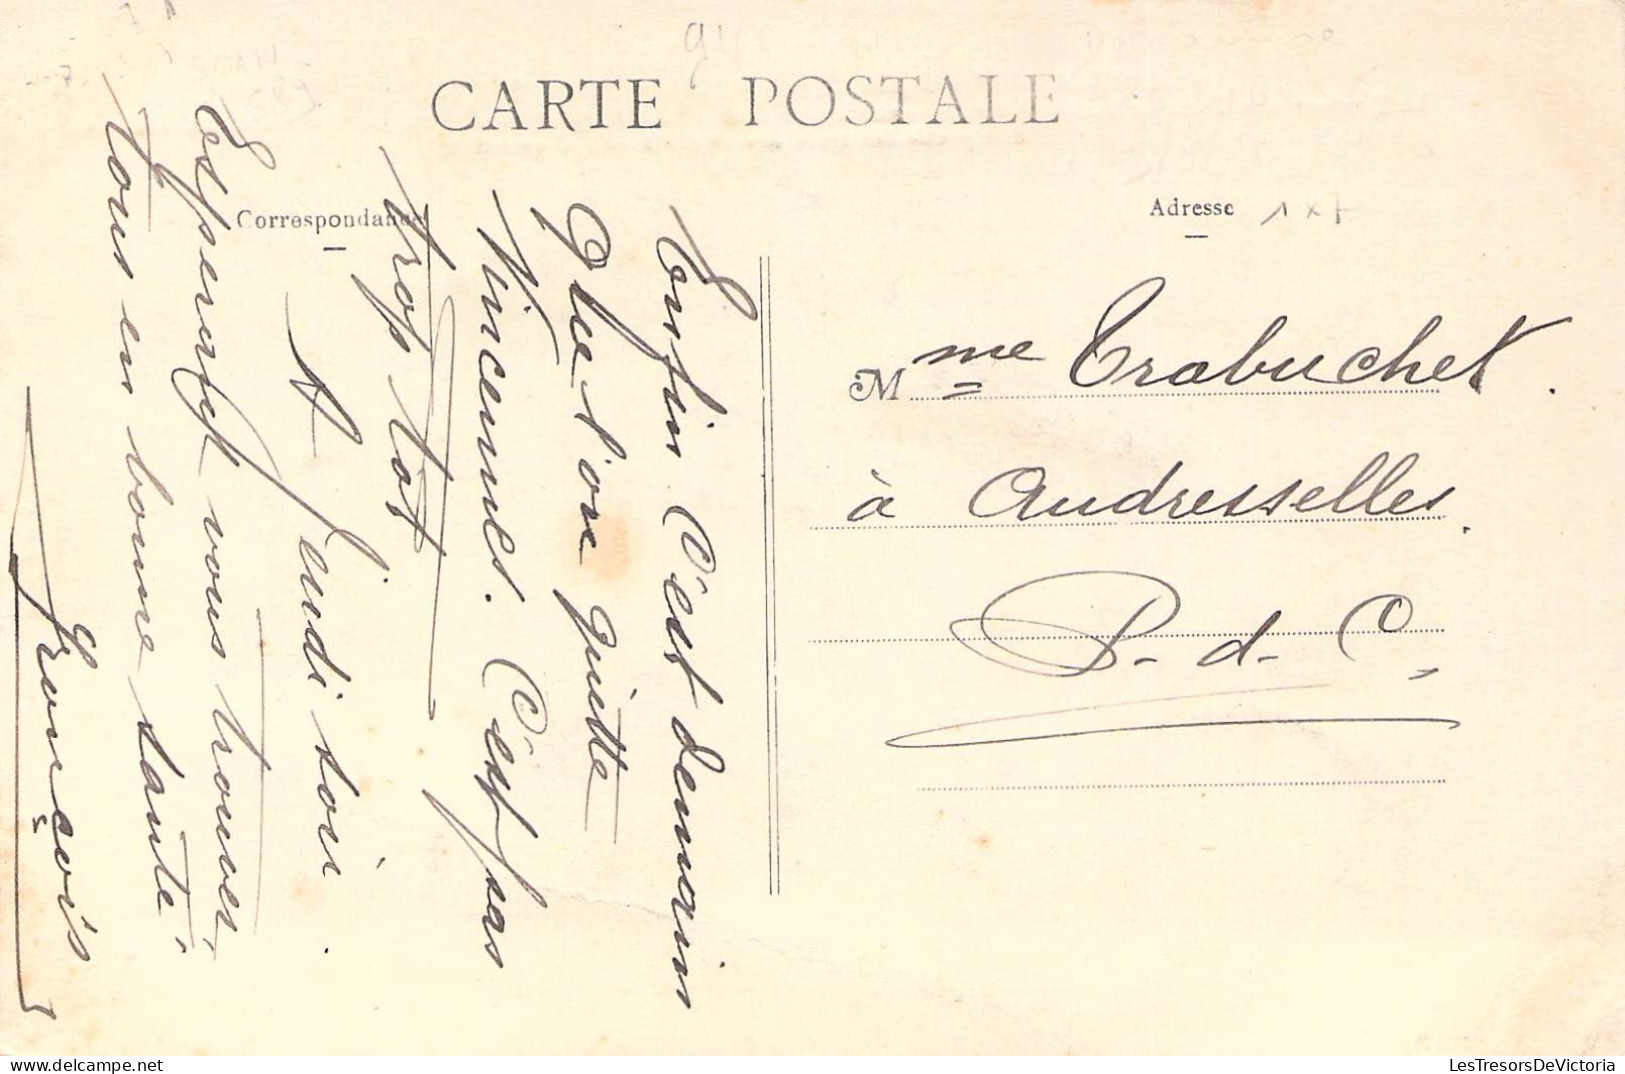 94
CARTE POSTALE
Correspondance
Adresse 1x7
Enfin C'est demain
Que l'on quitte
Vincennes. C'est pas
trop tôt
A Jeudi soir.
Esperant vous trouver,
tous en bonne santé
François
Mme Trabuchet.
à Audresselles.
P-d-C,
LesTresorsDeVictoria